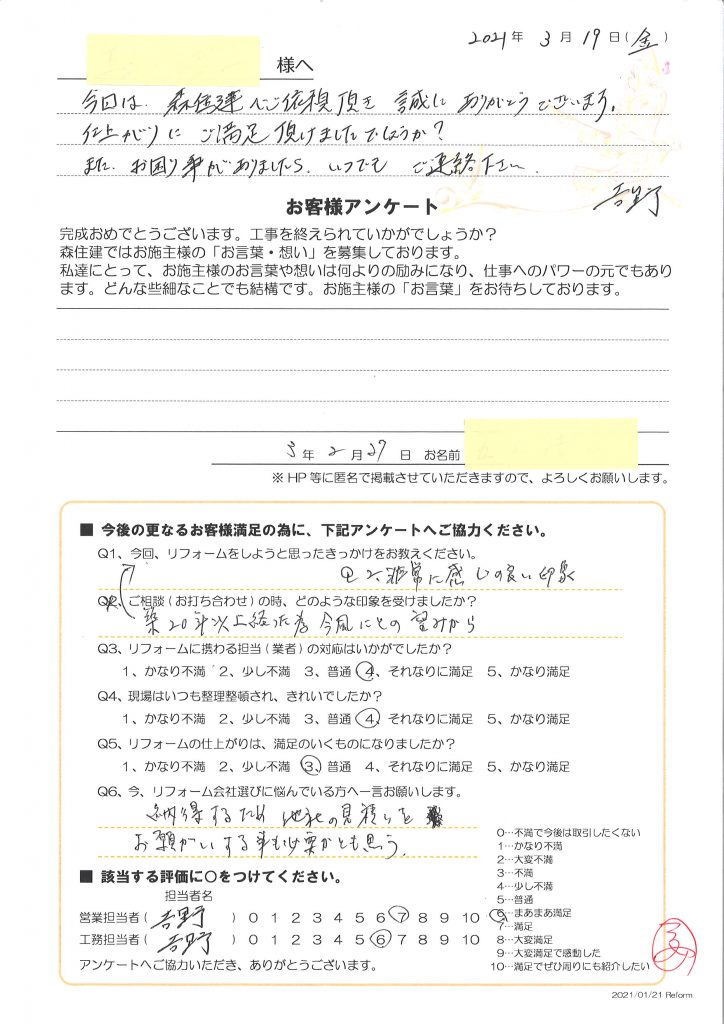 2021年 3月 19日(金)
様へ
今回は、森住建へご依頼頂き 誠に ありがとうございます。
仕上がりに ご満足頂けましたでしょうか?
また、お困り事がありましたら、いつでも ご連絡下さい。
吉野
お客様アンケート
完成おめでとうございます。工事を終えられていかがでしょうか?
森住建ではお施主様の「お言葉・想い」を募集しております。
私達にとって、お施主様のお言葉や想いは何よりの励みになり、仕事へのパワーの元でもあり
ます。どんな些細なことでも結構です。お施主様の「お言葉」をお待ちしております。
3年 2月 27日 お名前
※HP等に匿名で掲載させていただきますので、よろしくお願いします。
■ 今後の更なるお客様満足の為に、下記アンケートへご協力ください。
Q1、今回、リフォームをしようと思ったきっかけをお教えください。
Q2 非常に感じの良い印象
Q2、ご相談(お打ち合わせ)の時、どのような印象を受けましたか?
築20年以上経った為 今風にとの望みから
Q3、リフォームに携わる担当(業者)の対応はいかがでしたか?
1、かなり不満 2、少し不満 3、普通 4、それなりに満足 5、かなり満足
Q4、現場はいつも整理整頓され、きれいでしたか?
1、かなり不満 2、少し不満 3、普通 4、それなりに満足 5、かなり満足
Q5、リフォームの仕上がりは、満足のいくものになりましたか?
1、かなり不満 2、少し不満 3、普通 4、それなりに満足 5、かなり満足
Q6、今、リフォーム会社選びに悩んでいる方へ一言お願いします。
納得するため 他社の見積りを
お願がいする事も必要かとも思う。
■ 該当する評価に○をつけてください。
担当者名
営業担当者( 吉野 ) 0 1 2 3 4 5 6 7 8 9 10
工務担当者( 吉野 ) 0 1 2 3 4 5 6 7 8 9 10
アンケートへご協力いただき、ありがとうございます。
0…不満で今後は取引したくない
1…かなり不満
2…大変不満
3…不満
4…少し不満
5…普通
6…まあまあ満足
7…満足
8…大変満足
9…大変満足で感動した
10…満足でぜひ周りにも紹介したい
2021/01/21 Reform